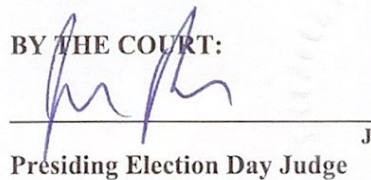 BY THE COURT:
J
Presiding Election Day Judge